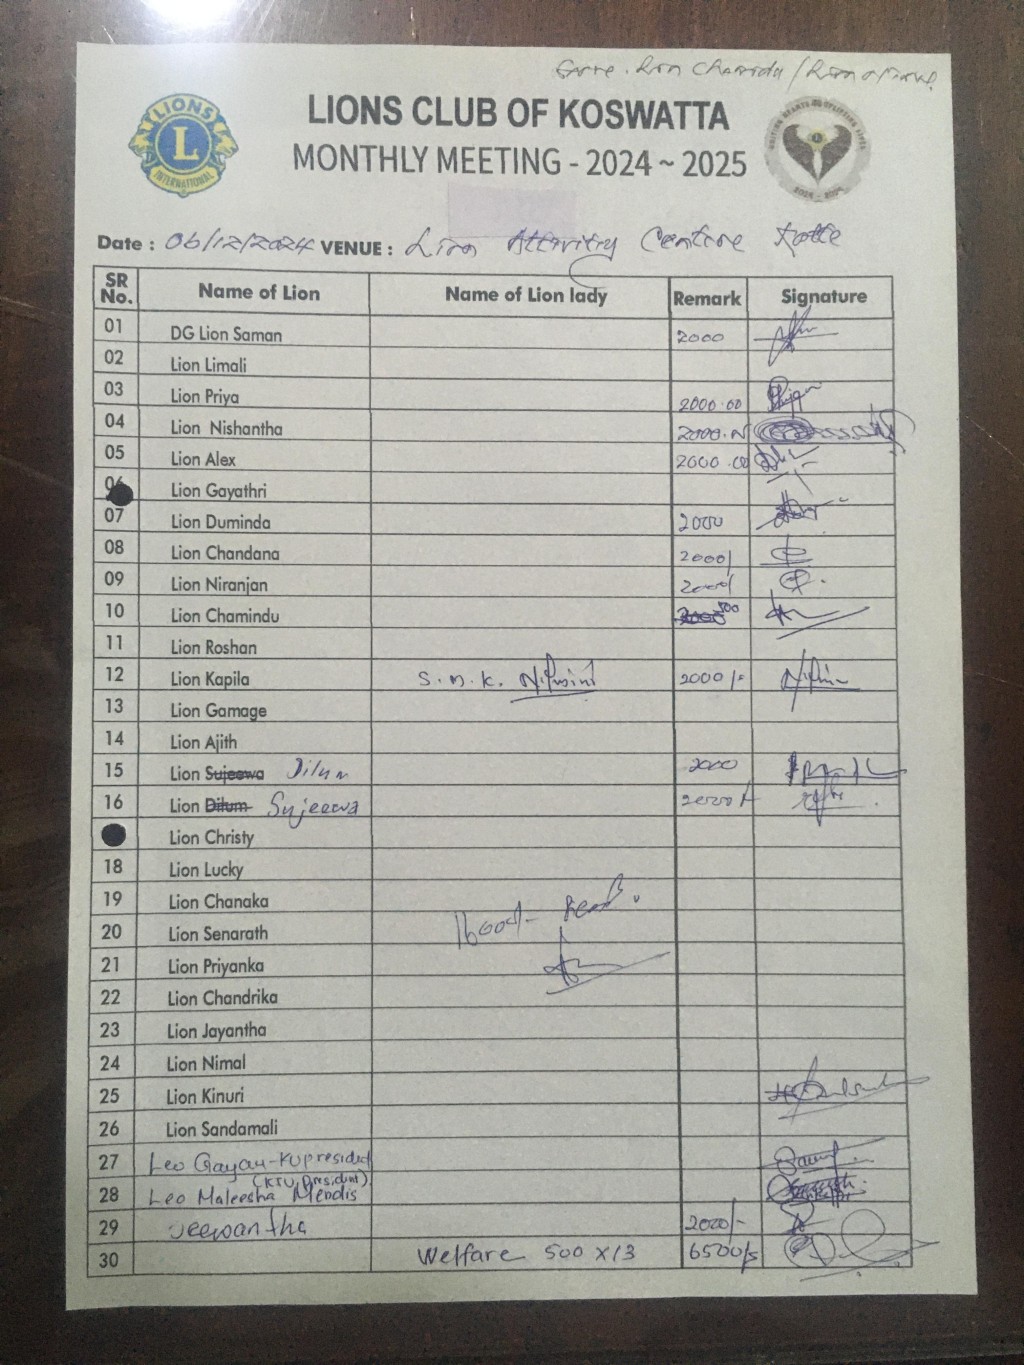 LIONS CLUB OF KOSWATTA
MONTHLY MEETING - 2024 ~ 2025
LIONS
L
INTERNATIONAL
Date : 06/12/2024 VENUE : Lion Activity Centre Kotte
SR No. Name of Lion Name of Lion lady Remark Signature
01 DG Lion Saman 2000
02 Lion Limali
03 Lion Priya 2000.00
04 Lion Nishantha 2000.
05 Lion Alex 2000.00
06 Lion Gayathri
07 Lion Duminda 2000
08 Lion Chandana 2000/
09 Lion Niranjan 2000/
10 Lion Chamindu 500
11 Lion Roshan
12 Lion Kapila S.M.K. Nilmini 2000/-
13 Lion Gamage
14 Lion Ajith
15 Lion Sujeewa Dilum 2000
16 Lion Dilum Sujeewa 2000/-
Lion Christy
18 Lion Lucky
19 Lion Chanaka
16000/-
20 Lion Senarath
21 Lion Priyanka
22 Lion Chandrika
23 Lion Jayantha
24 Lion Nimal
25 Lion Kinuri
26 Lion Sandamali
27 Leo Gayan-KU president
(KTU President)
28 Leo Maleesha Mendis
29 Jeewantha 2000/-
30 Welfare 500 x 13 6500/=